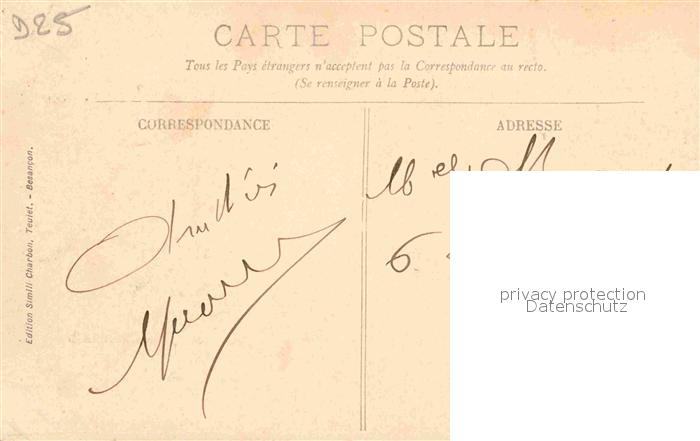 D25
CARTE POSTALE
Tous les Pays étrangers n'acceptent pas la Correspondance au recto.
(Se renseigner à la Poste).
CORRESPONDANCE
ADRESSE
Edition Simili Charbon, Teulet. - Besançon.
Amitiés
Melle
6
privacy protection
Datenschutz